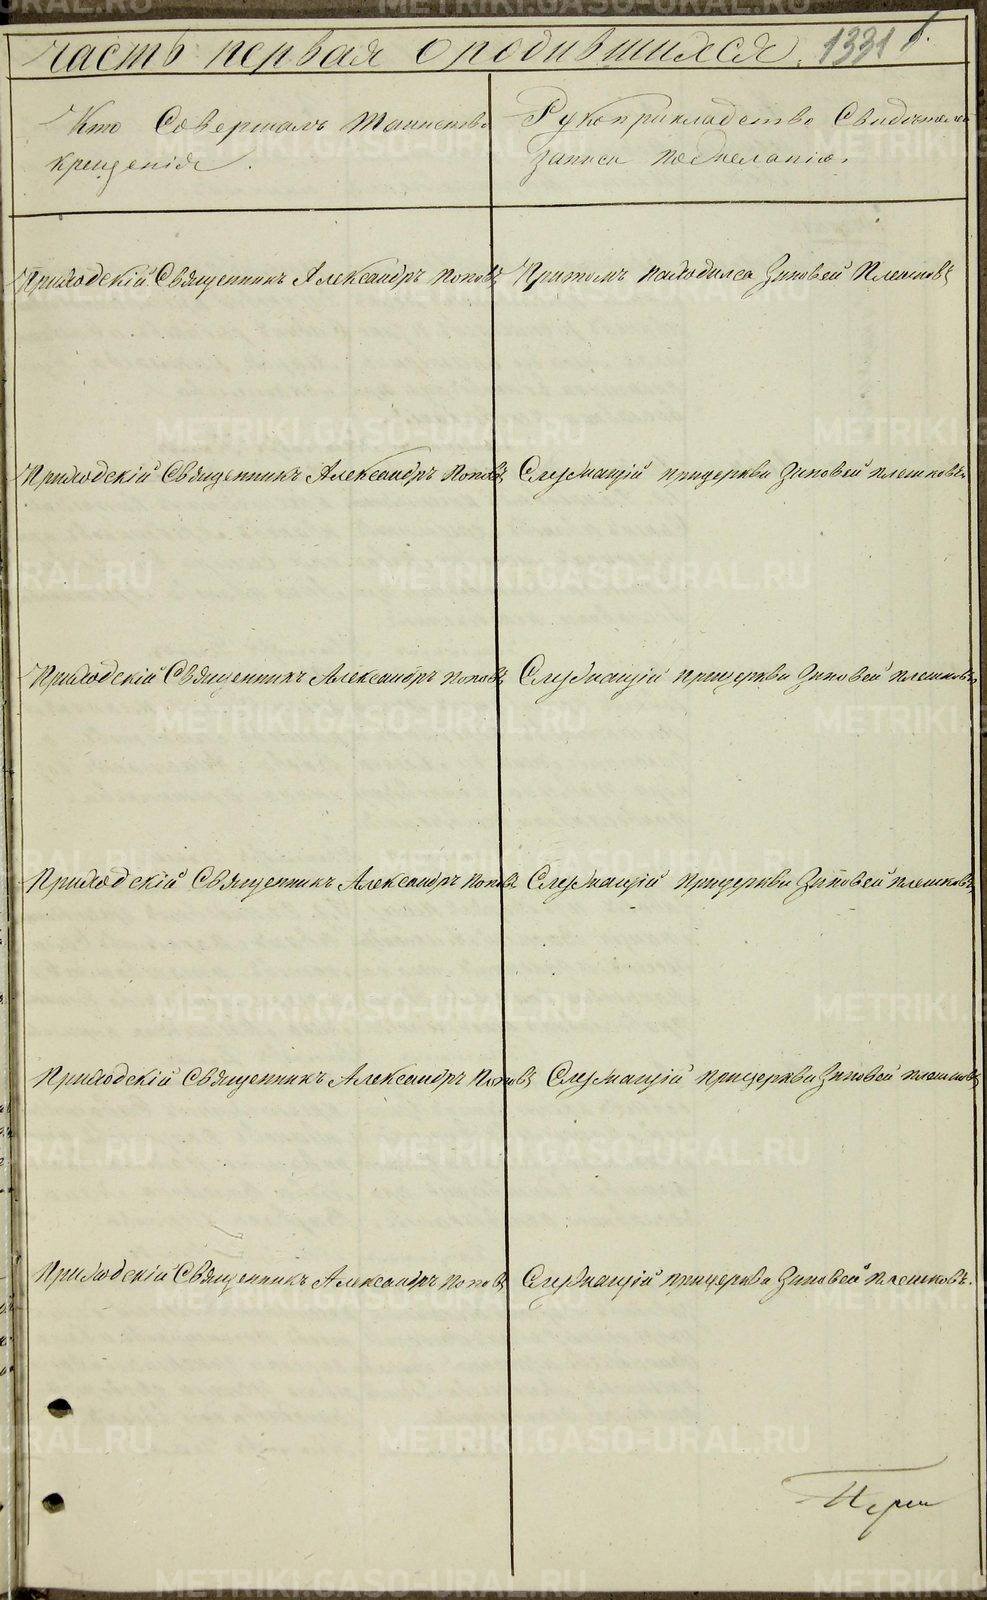 часть первая о родившихся. 1331
Кто Совершалъ Таинство
крещенія.
Рукоприкладство Свидѣтелей
Записи по желанію.
Приходскій Священникъ Александръ Поповъ
Притомъ находился Зиновей Плешковъ
Приходскій Священникъ Александръ Поповъ
Служащій прицеркви Зиновей Плешковъ.
Приходскій Священникъ Александръ Поповъ
Служащій прицеркви Зиновей Плешковъ
Приходскій Священникъ Александръ Поповъ
Служащій прицеркви Зиновей Плешковъ
Приходскій Священникъ Александръ Поповъ
Служащій прицеркви Зиновей Плешковъ
Приходскій Священникъ Александръ Поповъ
Служащій прицеркви Зиновей Плешковъ.
METRIKI.GASO-URAL.RU